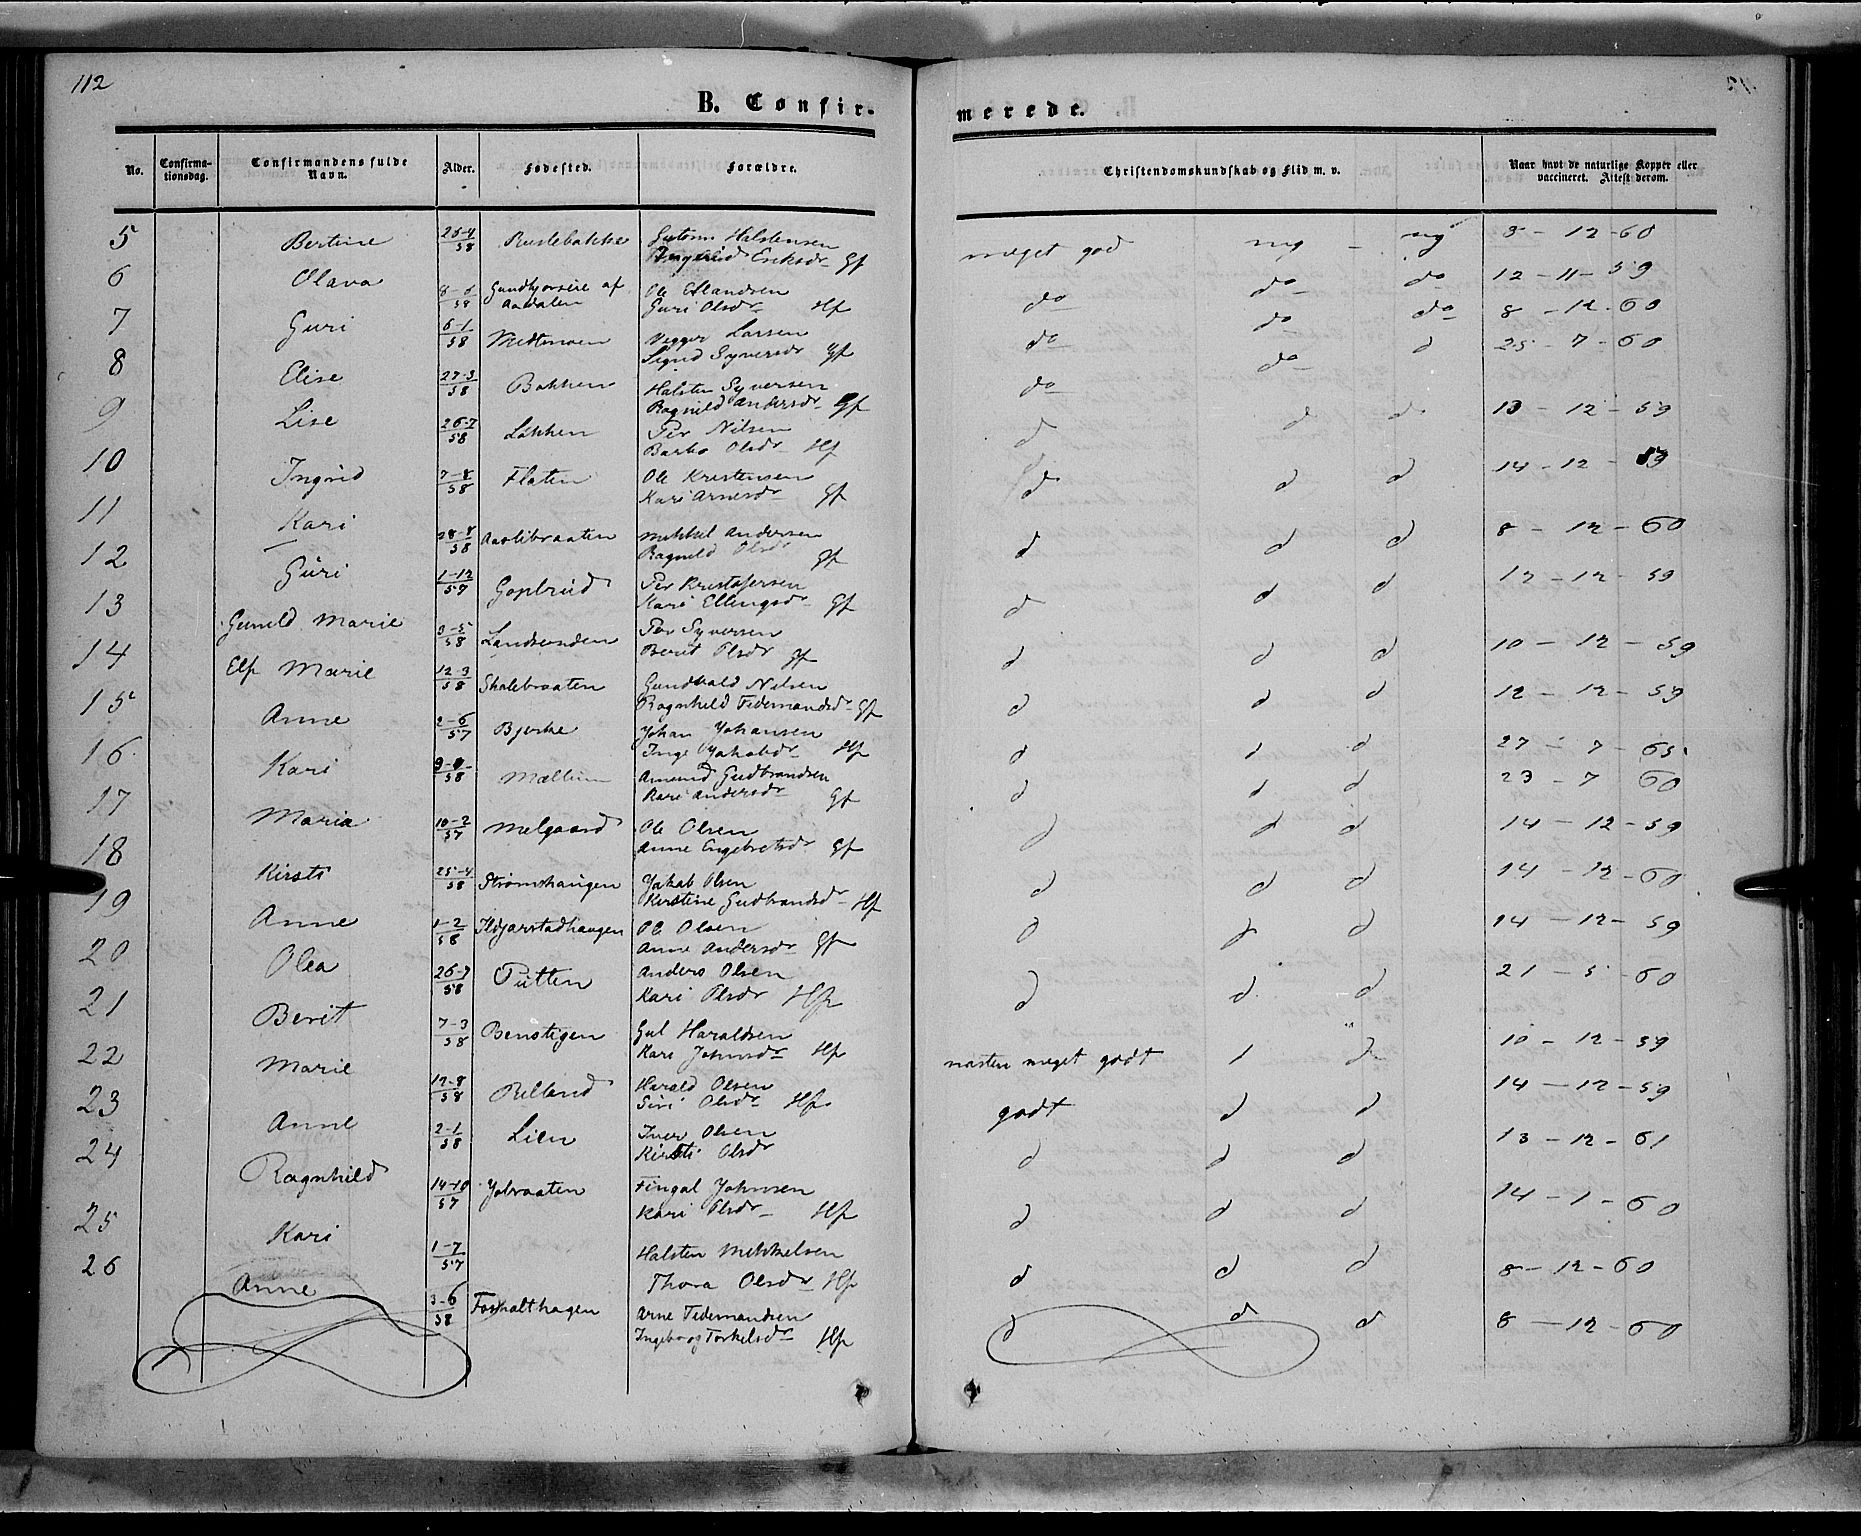 112
B. Confir-
merede.
No.
Confirma-
tionsdag.
Confirmandens fulde
Navn.
Alder.
Fødested.
Forældre.
Christendomskundskab og Flid m. v.
Naar havt de naturlige Kopper eller
vaccineret. Attest derom.
5 Bertine 58 Rustebakke Guttorm Halstensen meget god mg - mg 8 - 12 - 60
Ingrid Eriksdr Gf
6 Olava 58 af Ole Erlandsen do do do 12 - 11 - 59
Aadalen Guri Olsdr Hf
7 Guri 6-1 58 Midtmoen Vegger Larsen do do do 8 - 12 - 60
Sigrid Syversdr Gf
8 Elise 27-3 58 Bakken Halsten Syversen do do d 25 - 7 - 60
Ragnild Andersdr Gf
9 Lise 26-7 58 Løkken Per Nilsen d d d 13 - 12 - 59
Barbo Olsdr Hf
10 Ingrid 7-8 58 Flaten Ole Kristensen d d d 14 - 12 - 59
Kari Arnesdr Gf
11 Kari 28-8 58 Aaslibraaten Mikkel Andersen d d d 8 - 12 - 60
Ragnild Olsdr Gf
12 Guri 1-12 57 Goplerud Per Kristofersen d d d 12 - 12 - 59
Kari Ellingsdr Gf
13 Gunild Marie 3-5 58 Landsenden Per Syversen d d d 10 - 12 - 59
Berit Olsdr Gf
14 Marie 12-3 58 Skalebraaten Gundbald Nilsen d d d 12 - 12 - 59
Ragnhild Tidemandsdr Gf
15 Anne 2-6 57 Bjerke Johan Johansen d d d 27 - 7 - 65
Inge Jakobdr Hf
16 Kari 58 Mællum Amund Gudbrandsen d d d 23 - 7 60
Kari Andersdr Gf
17 Maria 10-2 57 Melgaard Ole Olsen d d d 14 - 12 - 59
Anne Engebretsdr Gf
18 Kirsti 25-4 58 Strømshaugen Jakob Olsen d d d 14 - 12 - 60
Kirstine Gudbrandsd Hf
19 Anne 1-2 58 Ole Olsen d d d 14 - 12 - 59
Anne Andersdr Gf
20 Olea 26-7 58 Putten Anders Olsen d d d 21 - 5 - 60
Kari Olsdr Hf
21 Berit 7-3 58 Benstigen Gul Haraldsen næsten meget godt d d 10 - 12 - 59
Kari Johnsdr Hf
22 Marie 12-8 58 Harald Olsen godt d d 14 - 12 - 59
Siri Olsdr Hf
23 Anne 2-1 58 Lien Iver Olsen d d d 13 - 12 - 61
Kirsti Olsdr
24 Ragnhild 14-10 57 Jobraaten Fingal Johnsen d d d 14 - 1 - 60
Kari Olsdr Hf
25 Kari 1-7 57 Halsten Mikkelsen d d d 8 - 12 - 60
Thora Olsdr Hf
26 Anne 3-6 58 Arne Tidemandsen d d d 8 - 12 - 60
Ingeborg Torkelsdr Hf